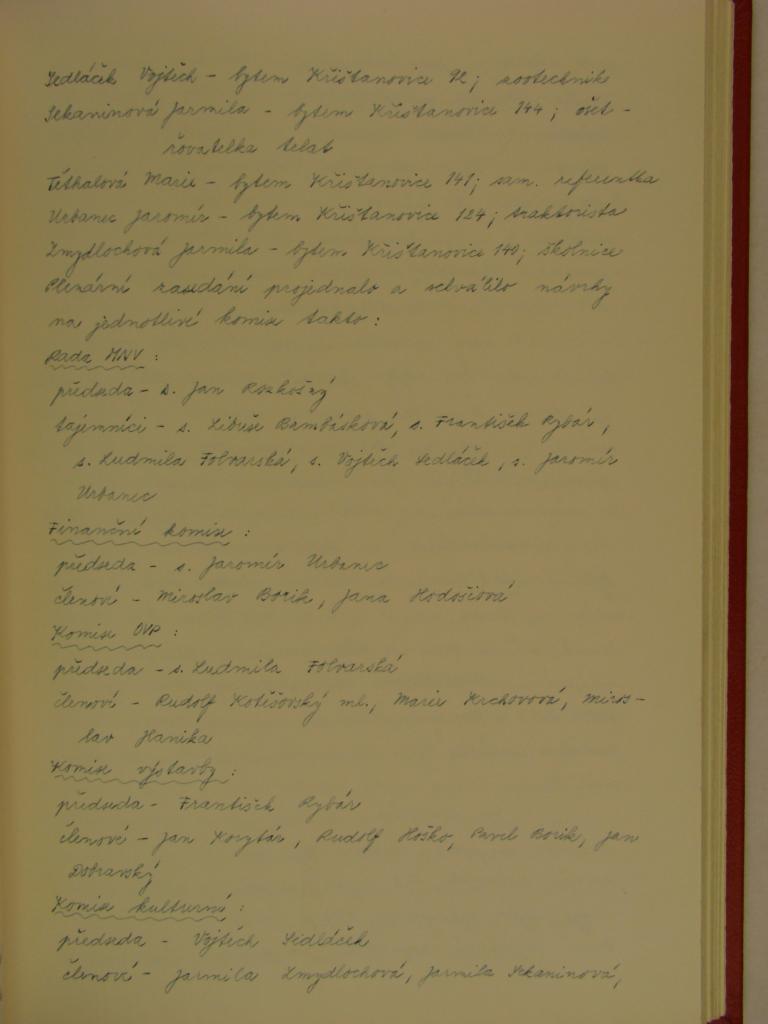 Sedláček Vojtěch - bytem Křišťanovice 92; zootechnik
Sekaninová Jarmila - bytem Křišťanovice 144; ošet-
řovatelka telat
Těthalová Marie - bytem Křišťanovice 141; sam. referentka
Urbanec Jaromír - bytem Křišťanovice 124; traktorista
Zmydlochová Jarmila - bytem Křišťanovice 140; školnice
Plenární zasedání projednalo a schválilo návrhy
na jednotlivé komise takto:
Rada MNV:
předseda - s. Jan Rozkošný
tajemníci - s. Libuše Bambásková, s. František Rybár,
s. Ludmila Folvarská, s. Vojtěch Sedláček, s. Jaromír
Urbanec
Finanční komise:
předseda - s. Jaromír Urbanec
členové - Miroslav Borik, Jana Hodošiová
Komise OVP:
předseda - s. Ludmila Folvarská
členové - Rudolf Kotišovský ml., Marie Krchovová, Miros-
lav Hanika
Komise výstavby:
předseda - František Rybár
členové - Jan Korytár, Rudolf Hoško, Pavel Borik, Jan
Dobravský
Komise kulturní:
předseda - Vojtěch Sedláček
členové - Jarmila Zmydlochová, Jarmila Sekaninová,